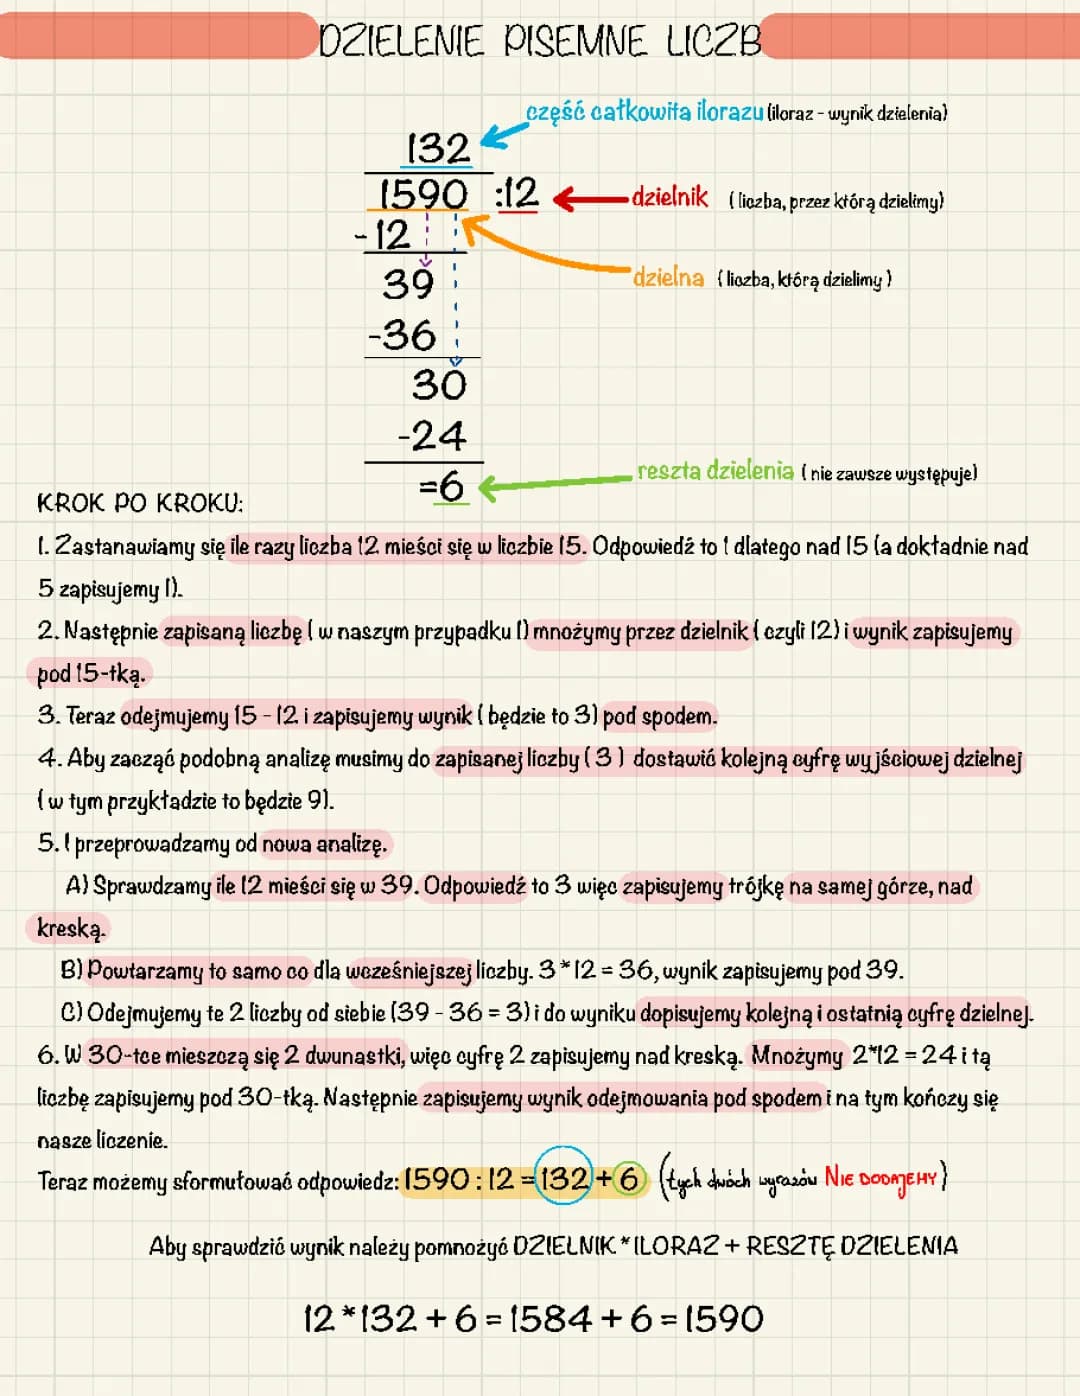 DZIELENIE PISEMNE LICZB
część całkowita ilorazu (iloraz - wynik dzielenia)
132
1590 :12
dzielnik (liczba, przez którą dzielimy)
-12
dzielna (liczba, którą dzielimy)
39
-36
30
-24
reszta dzielenia (nie zawsze występuje)
=6
KROK PO KROKU:
1. Zastanawiamy się ile razy liczba 12 mieści się w liczbie 15. Odpowiedź to 1 dlatego nad 15 (a dokładnie nad
5 zapisujemy 1).
2. Następnie zapisaną liczbę (w naszym przypadku 1) mnożymy przez dzielnik (czyli 12) i wynik zapisujemy
pod 15-tką.
3. Teraz odejmujemy 15 - 12 i zapisujemy wynik (będzie to 3) pod spodem.
4. Aby zacząć podobną analizę musimy do zapisanej liczby (3) dostawić kolejną cyfrę wyjściowej dzielnej
(w tym przykładzie to będzie 9).
5. I przeprowadzamy od nowa analizę.
A) Sprawdzamy ile 12 mieści się w 39. Odpowiedź to 3 więc zapisujemy trójkę na samej górze, nad
kreską.
B) Powtarzamy to samo co dla wcześniejszej liczby. 3*12 = 36, wynik zapisujemy pod 39.
C) Odejmujemy te 2 liczby od siebie (39 - 36 = 3) i do wyniku dopisujemy kolejną i ostatnią cyfrę dzielnej.
6. W 30-tce mieszczą się 2 dwunastki, więc cyfrę 2 zapisujemy nad kreską. Mnożymy 2*12 = 24 i tą
liczbę zapisujemy pod 30-tką. Następnie zapisujemy wynik odejmowania pod spodem i na tym kończy się
nasze liczenie.
Teraz możemy sformułować odpowiedz: 1590 : 12 = 132 + 6 (tych dwóch wyrazów NIE DODAJEMY)
Aby sprawdzić wynik należy pomnożyć DZIELNIK * ILORAZ + RESZTĘ DZIELENIA
12 * 132 + 6 = 1584 + 6 = 1590